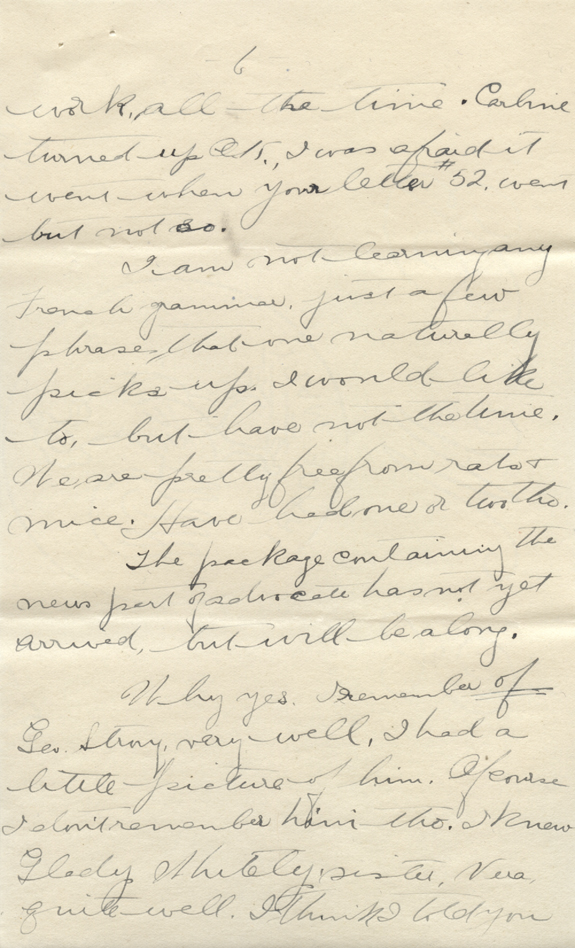 6
work, all the time. Carbine
turned up O.K., I was afraid it
went when your letter #52. went
but not so.
I am not learning any
French grammer, just a few
phrases, that one naturally
picks up. I would like
to, but have not the time.
We are pretty free from rats &
mice. Have had one or two tho.
The package containing the
news part of advocate has not yet
arrived, but will be along.
Why yes. I remember of
Geo. Strong, very well, I had a
little picture of him. Of course
I don't remember him tho. I knew
Glady Whitely, sister, Vera,
quite well. I think I told you